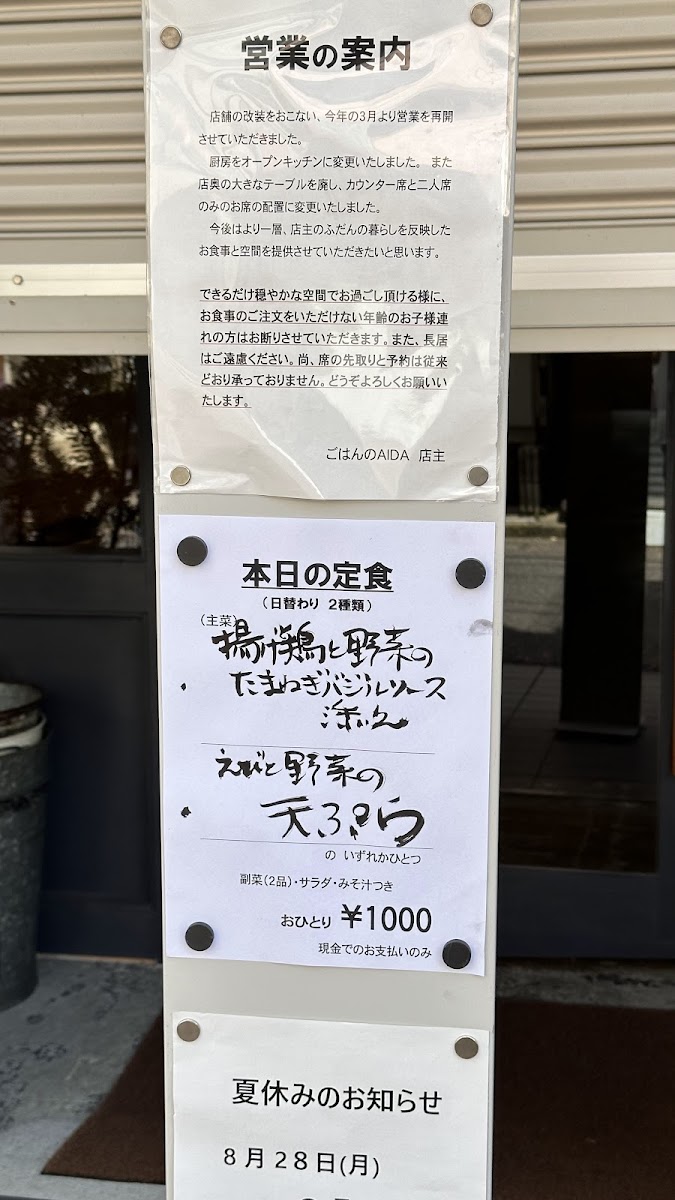 営業の案内
店舗の改装をおこない、今年の3月より営業を再開
させていただきました。
厨房をオープンキッチンに変更いたしました。 また
店奥の大きなテーブルを廃し、カウンター席と二人席
のみのお席の配置に変更いたしました。
今後はより一層、店主のふだんの暮らしを反映した
お食事と空間を提供させていただきたいと思います。
できるだけ穏やかな空間でお過ごし頂ける様に、
お食事のご注文をいただけない年齢のお子様連
れの方はお断りさせていただきます。また、長居
はご遠慮ください。尚、席の先取りと予約は従来
どおり承っておりません。どうぞよろしくお願いい
たします。
ごはんのAIDA 店主
本日の定食
(日替わり 2種類)
(主菜)
揚げ鶏と野菜の
たまねぎバジルソース
添え
えびと野菜の
天ぷら
の いずれかひとつ
副菜(2品)・サラダ・みそ汁つき
おひとり ¥1000
現金でのお支払いのみ
夏休みのお知らせ
8月28日(月)